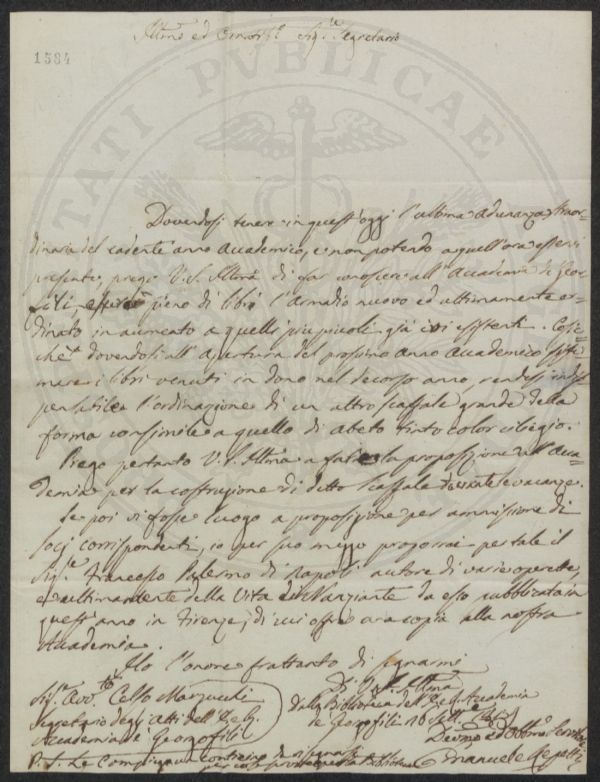 1584
Illmo ed Sigre Segretario
Dovendosi tenere in quest'oggi l'ultima adunanza straor=
dinaria del cadente anno Accademico, e non potendo a quell'ora esservi
presente, prego V.S. Illma di far conoscere all'Accademia de Geor=
gofili, pieno di libri l'Armadio nuovo ed ultimamente or=
dinato in aumento a quelli più piccoli già ivi esistenti. Cosic=
chè dovendosi all'Apertura del prossimo anno Accademico siste=
mare i libri venuti in dono nel decorso anno, rendesi indis=
pensabile l'ordinazione di un altro scaffale grande della
forma consimile a quello di abeto tinto color ciliegio.
Prego pertanto V.S. Illma a far la proposizione all'Acca=
demia per la costruzione di detto scaffale vacanze.
Se poi vi fosse luogo a proposizione per ammissione di
Socj corrispondenti, io per suo mezzo progorrei per tale il
Sigre Francesco Palermo di Napoli autore di varie operette,
e ultimamente della Vita di da esso pubblicata in
quest'anno in Firenze, di cui offre una copia alla nostra
Accademia.
Ho l'onore frattanto di segnarmi
Di V.S. Illma
Sigre Avvto Celso Marzucchi
Segretario degli Atti dell'I. e R.
Accademia de Georgofili
Dalla Biblioteca dell'I. e R. Accademia
de Georgofili
Devmo ed Obbmo Servitore
Emanuele Repetti
P.S. Le